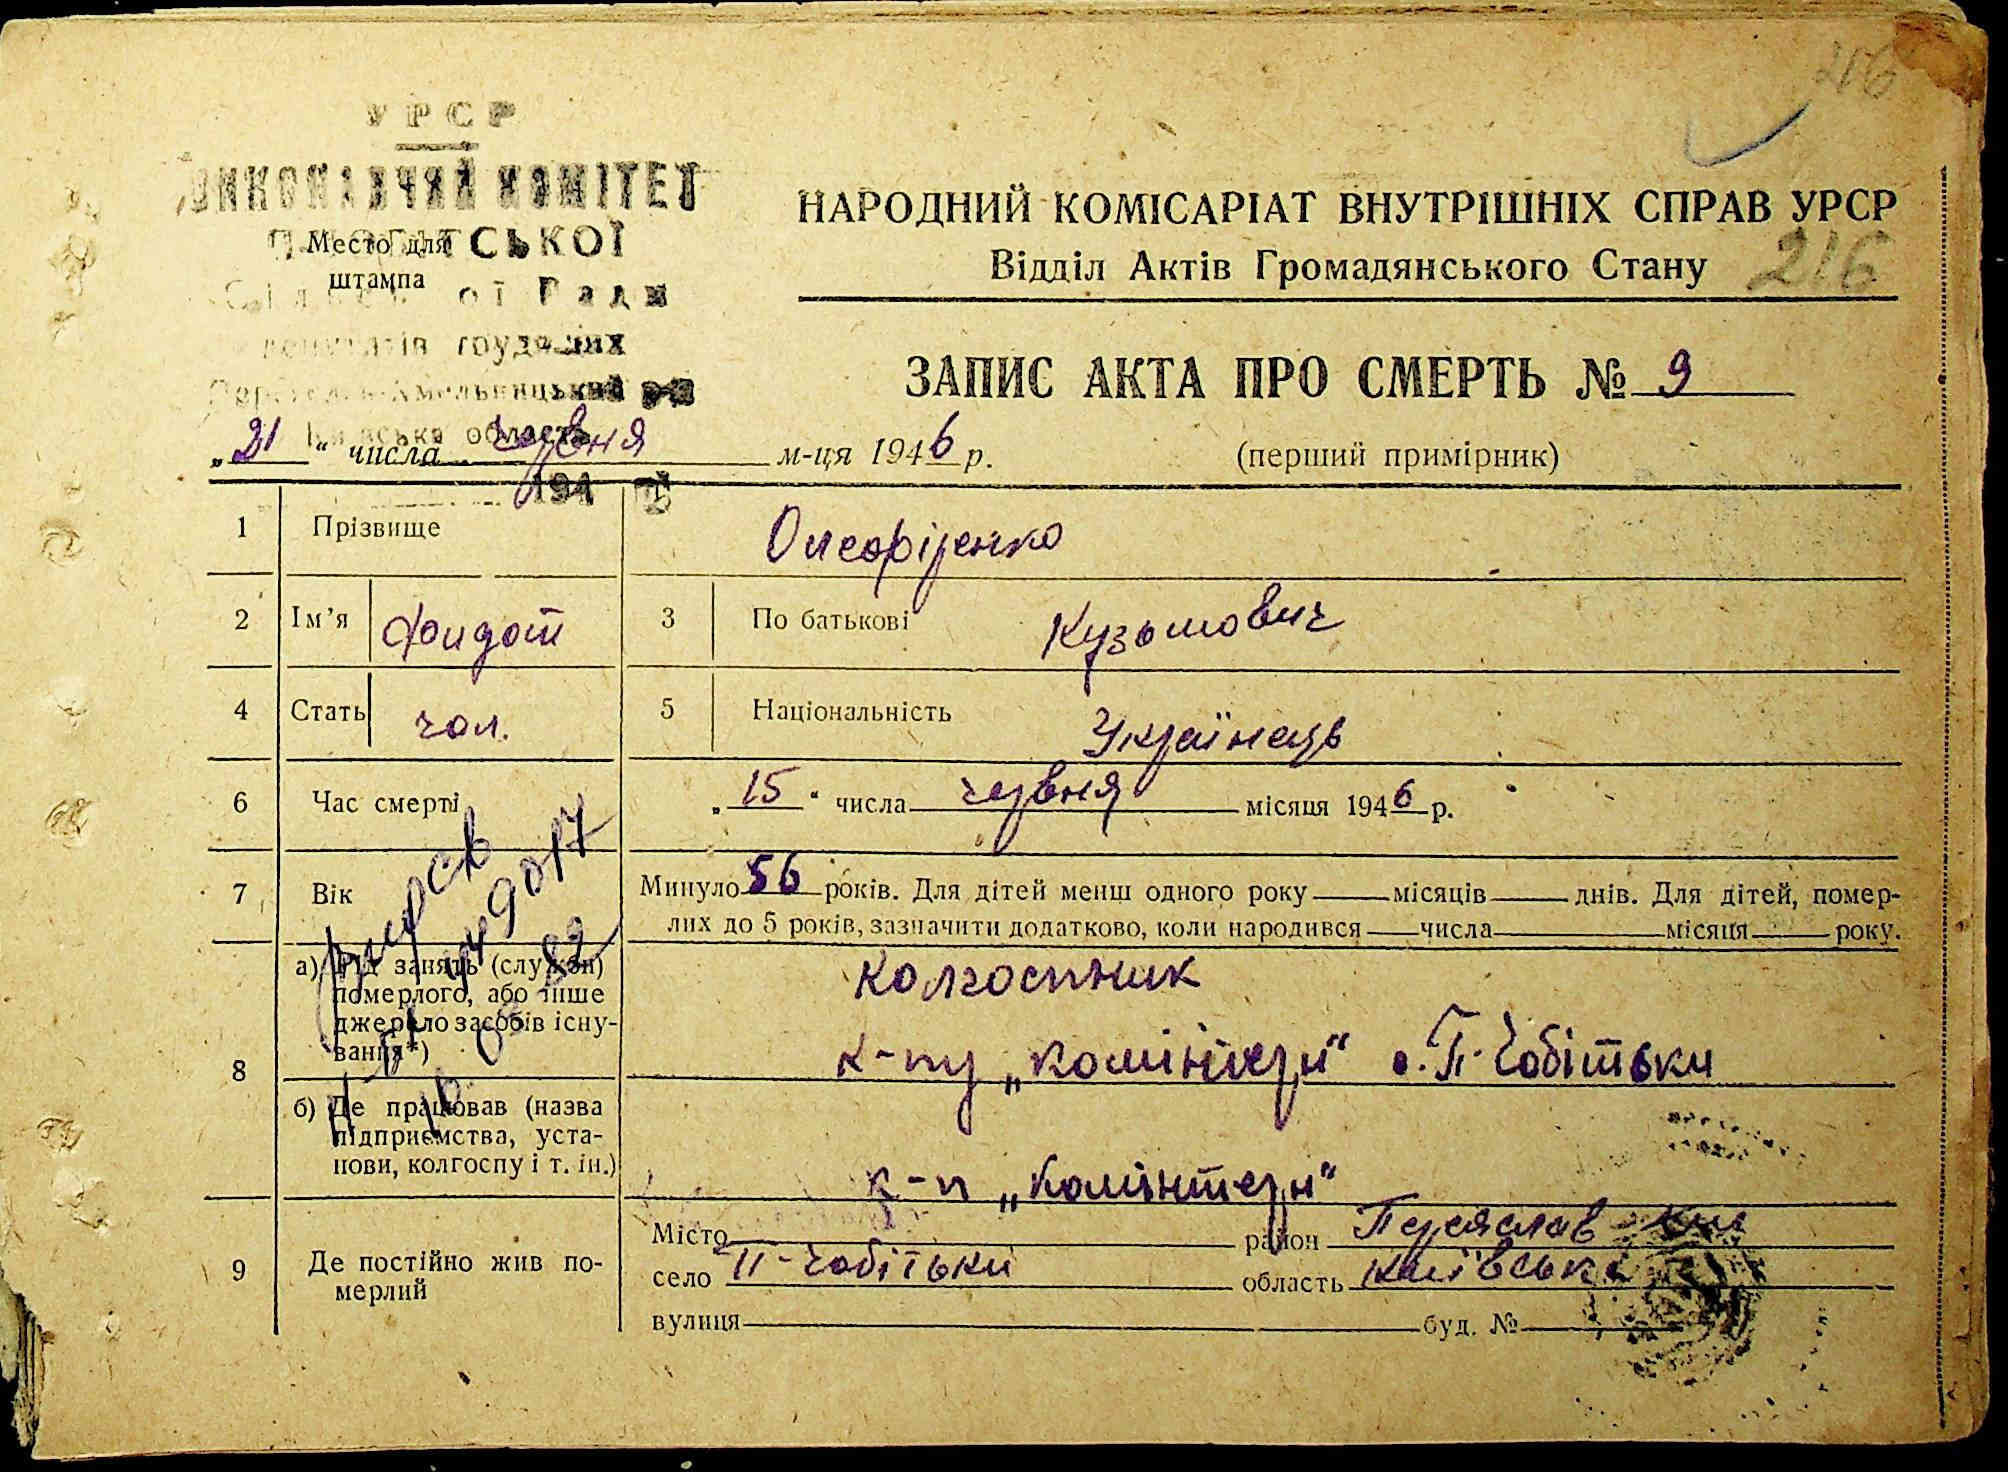 216
УРСР
ВИКОНАВЧИЙ КОМІТЕТ
СЬКОЇ
Место для
штампа
Ради
депутатів трудящих
Переяслав-Хмельницький
Київська область
194
НАРОДНИЙ КОМІСАРІАТ ВНУТРІШНІХ СПРАВ УРСР
Відділ Актів Громадянського Стану 216
ЗАПИС АКТА ПРО СМЕРТЬ № 9
„21“ числа червня м-ця 1946 р. (перший примірник)
1 Прізвище
2 Ім’я Фидот 3 По батькові Кузьмович
4 Стать чол. 5 Національність Українець
6 Час смерті „15“ числа червня місяця 1946 р.
7 Вік Минуло 56 років. Для дітей менш одного року місяців днів. Для дітей, помер-
лих до 5 років, зазначити додатково, коли народився числа місяця року.
8 а) Рід занять (служби)
померлого, або інше
джерело засобів існу-
вання*)
колгоспник
к-пу „комінтерн“ с. П-Чобітьки
б) Де працював (назва
підприємства, уста-
нови, колгоспу і т. ін.)
к-п „комінтерн“
9 Де постійно жив по-
мерлий
Місто район Переяслав
село П-Чобітьки область Київська
вулиця буд. №